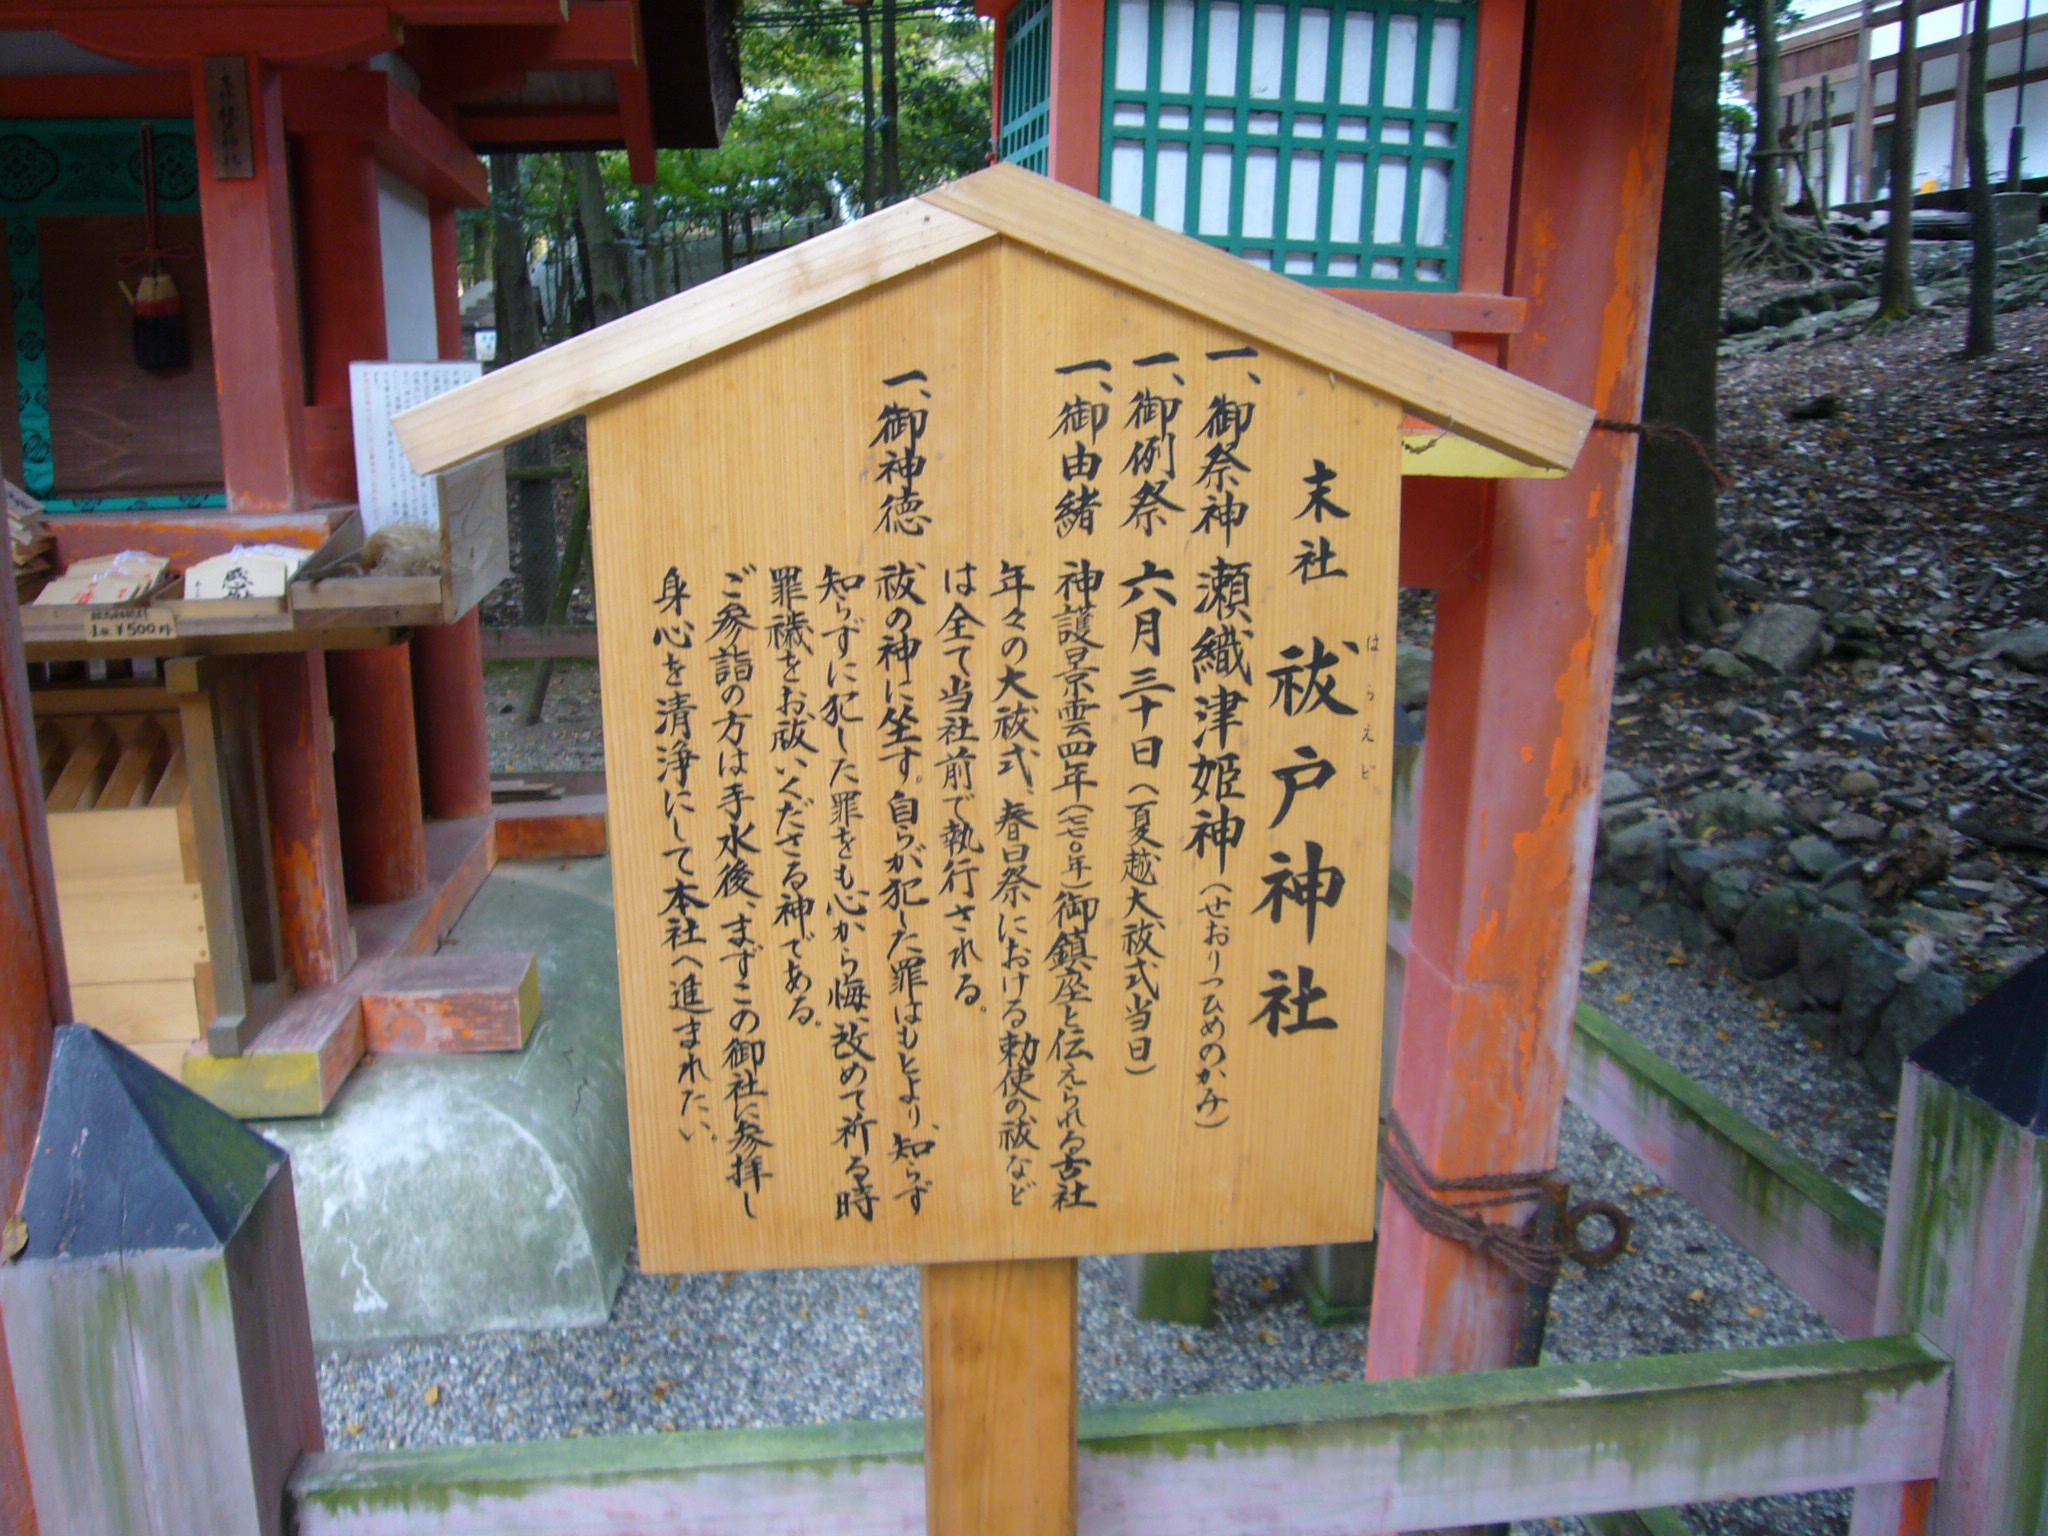 末社 祓戸神社
はらえど
一、御祭神 瀬織津姫神（せおりつひめのかみ）
一、御例祭 六月三十日（夏越大祓式当日）
一、御由緒 神護景雲四年（七七〇年）御鎮座と伝えられる古社
年々の大祓式、春日祭における勅使の祓など
は全て当社前で執行される。
一、御神徳 祓の神に坐す。自らが犯した罪はもとより、知らず
知らずに犯した罪をも心から悔い改めて祈る時
罪穢をお祓いくださる神である。
ご参詣の方は手水後、まずこの御社に参拝し
身心を清浄にして本社へ進まれたい。
¥500円